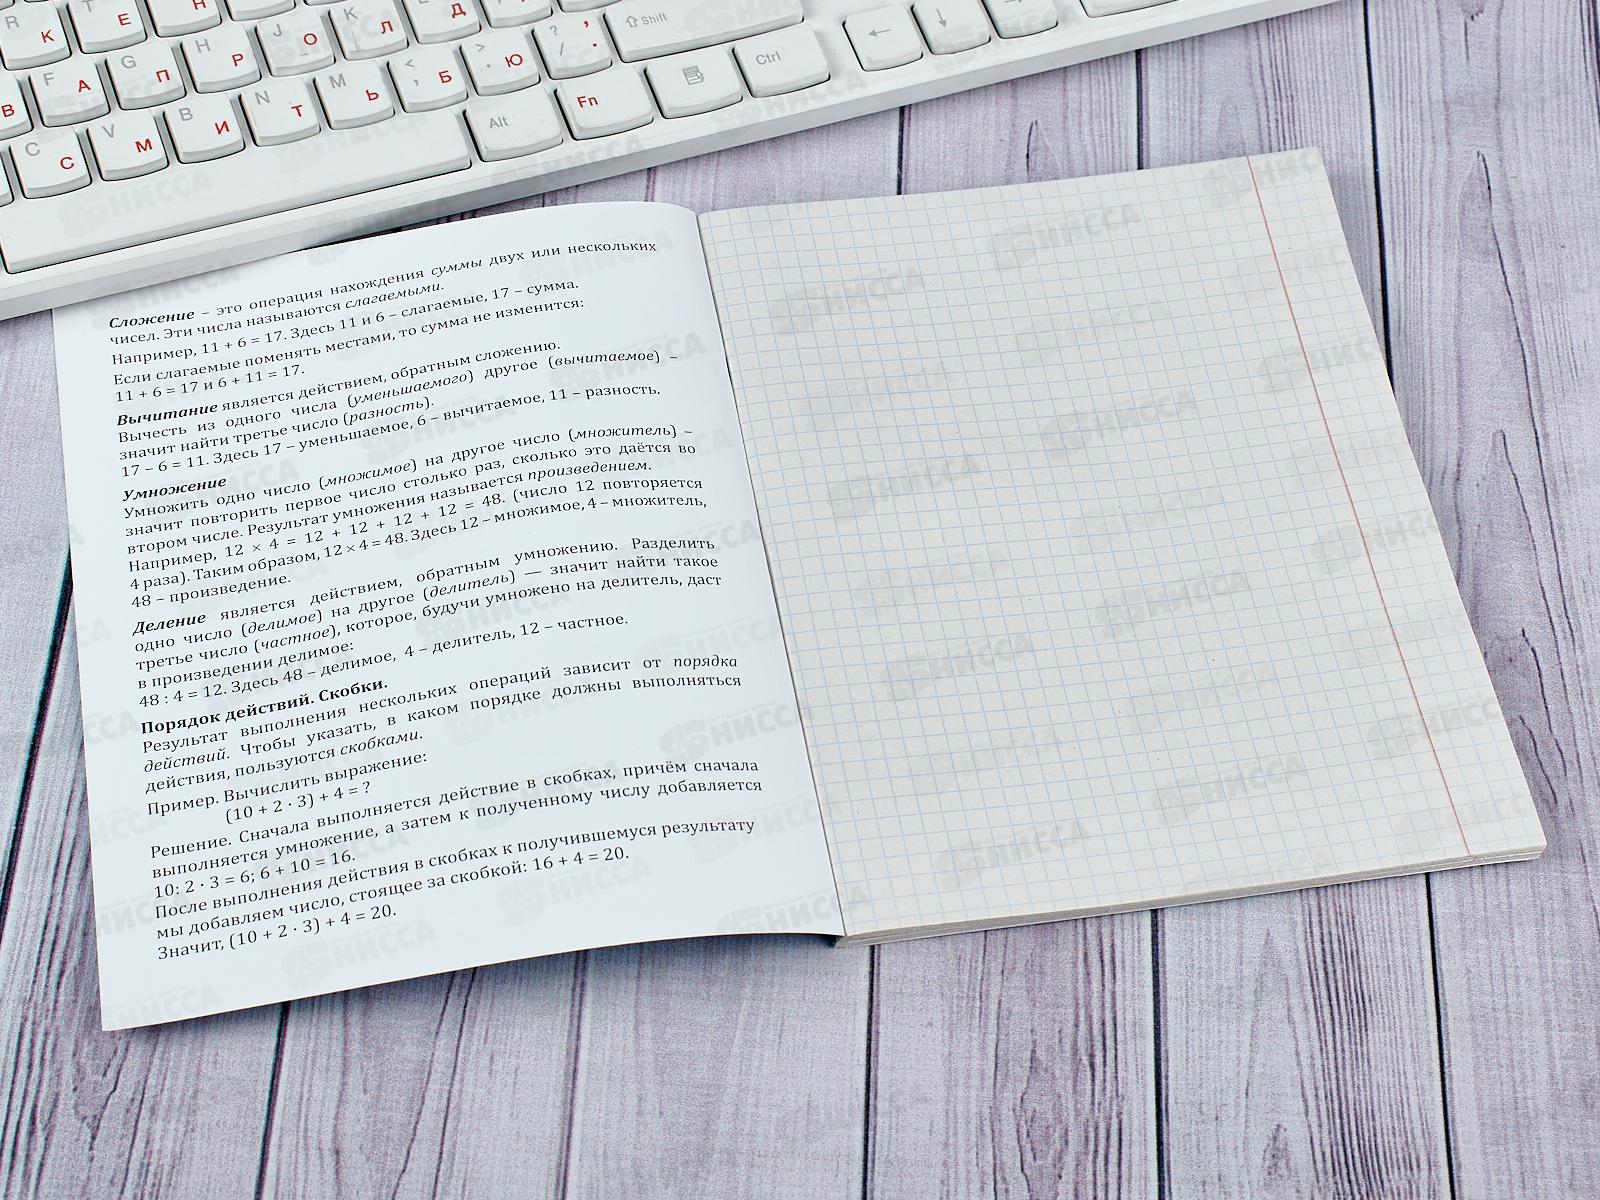 R К T Е Н J О K Л Д
F А G П H Р J О K Л
В C С V М B И N Т M Ь < , Б > . Ю ? / .
⇧ Shift
Alt Fn Ctrl ← ↓
Сложение – это операция нахождения суммы двух или нескольких
чисел. Эти числа называются слагаемыми.
Например, 11 + 6 = 17. Здесь 11 и 6 – слагаемые, 17 – сумма.
Если слагаемые поменять местами, то сумма не изменится:
11 + 6 = 17 и 6 + 11 = 17.
Вычитание является действием, обратным сложению.
Вычесть из одного числа (уменьшаемого) другое (вычитаемое) –
значит найти третье число (разность).
17 – 6 = 11. Здесь 17 – уменьшаемое, 6 – вычитаемое, 11 – разность.
Умножение
Умножить одно число (множимое) на другое число (множитель) –
значит повторить первое число столько раз, сколько это даётся во
втором числе. Результат умножения называется произведением.
Например, 12 × 4 = 12 + 12 + 12 + 12 = 48. (число 12 повторяется
4 раза). Таким образом, 12 × 4 = 48. Здесь 12 – множимое, 4 – множитель,
48 – произведение.
Деление является действием, обратным умножению. Разделить
одно число (делимое) на другое (делитель) — значит найти такое
третье число (частное), которое, будучи умножено на делитель, даст
в произведении делимое:
48 : 4 = 12. Здесь 48 – делимое, 4 – делитель, 12 – частное.
Порядок действий. Скобки.
Результат выполнения нескольких операций зависит от порядка
действий. Чтобы указать, в каком порядке должны выполняться
действия, пользуются скобками.
Пример. Вычислить выражение:
(10 + 2 · 3) + 4 = ?
Решение. Сначала выполняется действие в скобках, причём сначала
выполняется умножение, а затем к полученному числу добавляется
10: 2 · 3 = 6; 6 + 10 = 16.
После выполнения действия в скобках к получившемуся результату
мы добавляем число, стоящее за скобкой: 16 + 4 = 20.
Значит, (10 + 2 · 3) + 4 = 20.
НИССА